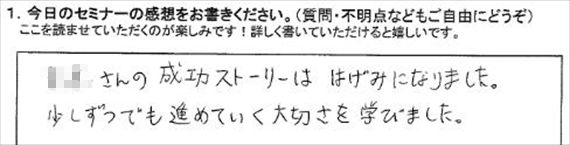 1. 今日のセミナーの感想をお書きください。(質問・不明点などもご自由にどうぞ)
ここを読ませていただくのが楽しみです!詳しく書いていただけると嬉しいです。
さんの成功ストーリーは はげみになりました。
少しずつでも進めていく大切さを学びました。